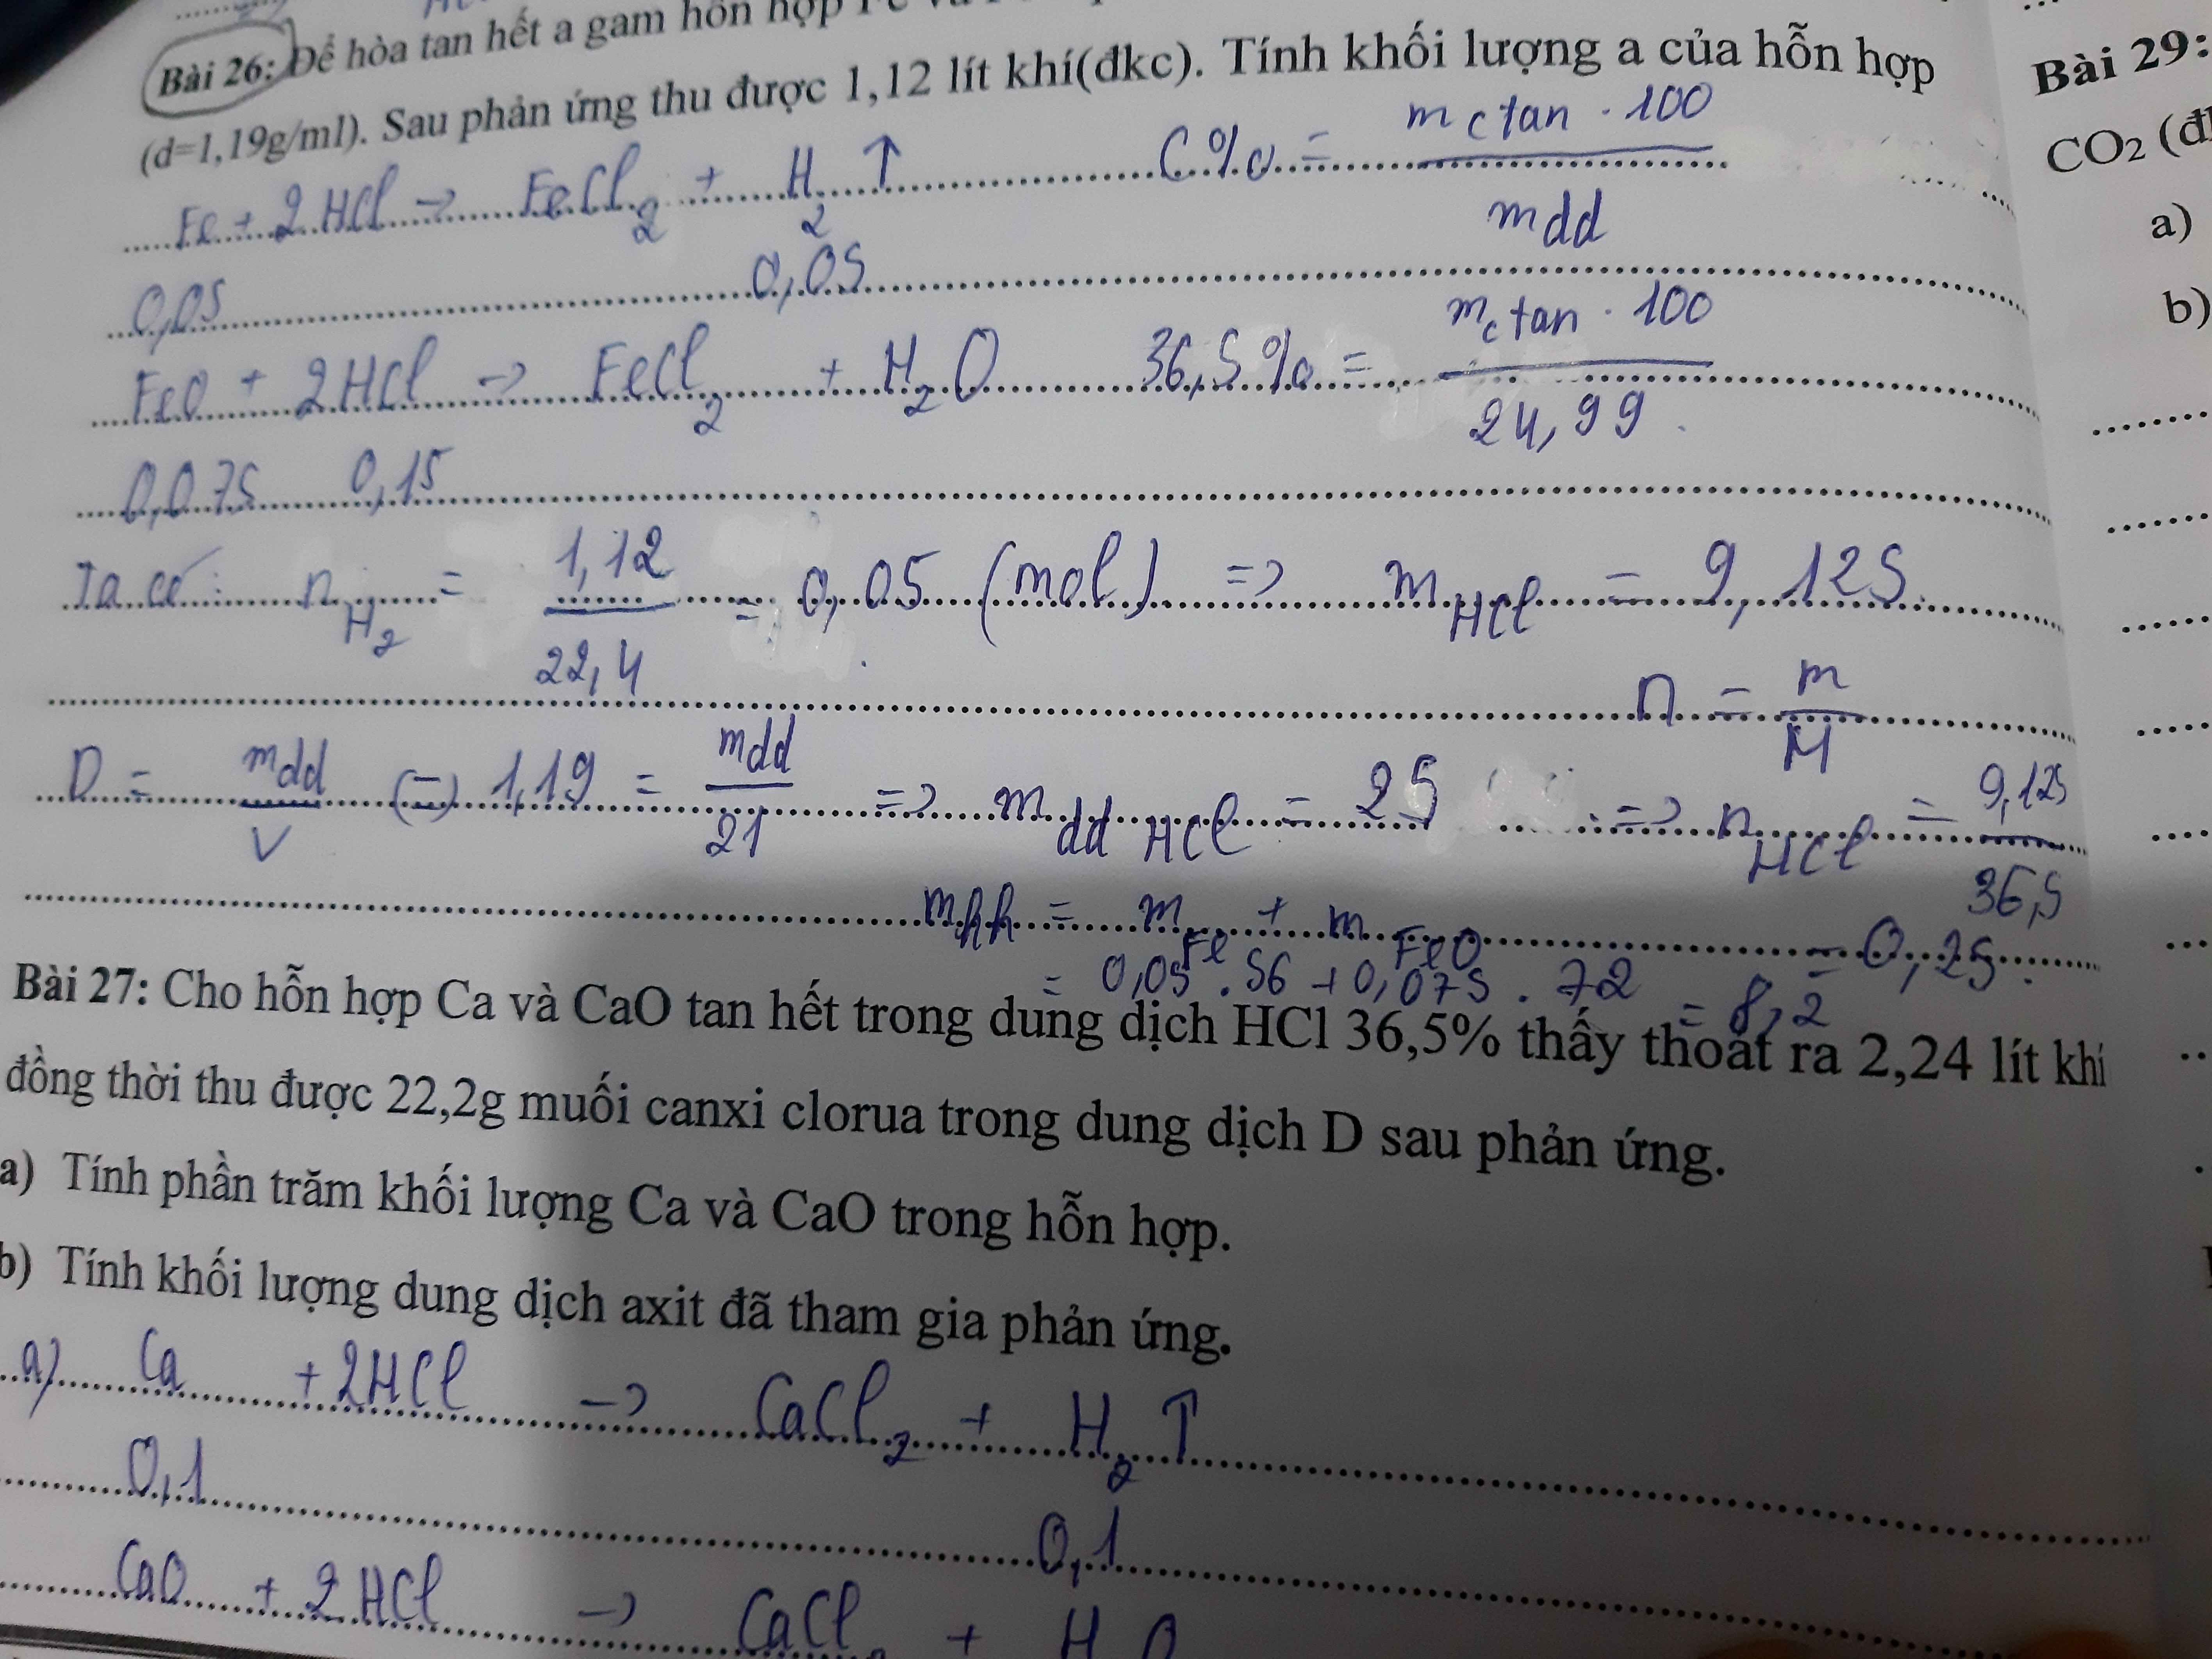 Bài 26: Để hòa tan hết a gam hỗn hợp
(d=1,19g/ml). Sau phản ứng thu được 1,12 lít khí(đkc). Tính khối lượng a của hỗn hợp
Fe + 2HCl -> FeCl2 + H2 ↑ C% = mctan . 100 / mdd
0,05 0,05
FeO + 2HCl -> FeCl2 + H2O 36,5% = mctan . 100 / 24,99
0,075 0,15
Ta có: nH2 = 1,12 / 22,4 = 0,05 (mol) => mHCl = 9,125
n = m / M
D = mdd / V (=) 1,19 = mdd / 21 => mdd HCl = 25 => nHCl = 9,125 / 36,5
mhh = mFe + mFeO = 0,25
= 0,05 . 56 + 0,075 . 72 = 8,2
Bài 27: Cho hỗn hợp Ca và CaO tan hết trong dung dịch HCl 36,5% thấy thoát ra 2,24 lít khí
đồng thời thu được 22,2g muối canxi clorua trong dung dịch D sau phản ứng.
a) Tính phần trăm khối lượng Ca và CaO trong hỗn hợp.
b) Tính khối lượng dung dịch axit đã tham gia phản ứng.
a) Ca + 2HCl -> CaCl2 + H2 ↑
0,1 0,1
CaO + 2HCl -> CaCl2 + H2O
Bài 29:
CO2
a)
b)